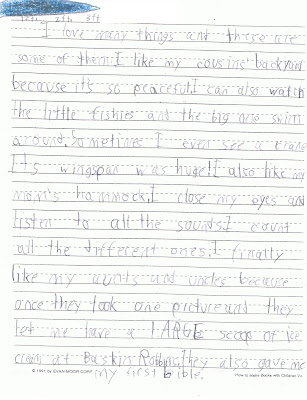 I love many things and these are
some of them. I like my cousins' backyard
because it's so peaceful. I can also watch
the little fishies and the big one swim
around. Sometimes I even see a crane
It's wingspan was huge! I also like my
mom's hammock. I close my eyes and
listen to all the sounds. I count
all the different ones. I finally
like my aunts and uncles because
once they took one picture and they
let me have a LARGE scoop of ice
cream at Baskin Robbins. They also gave me
my first bible.
© 1991 by EVAN-MOOR CORP.
How to Make Books with Children